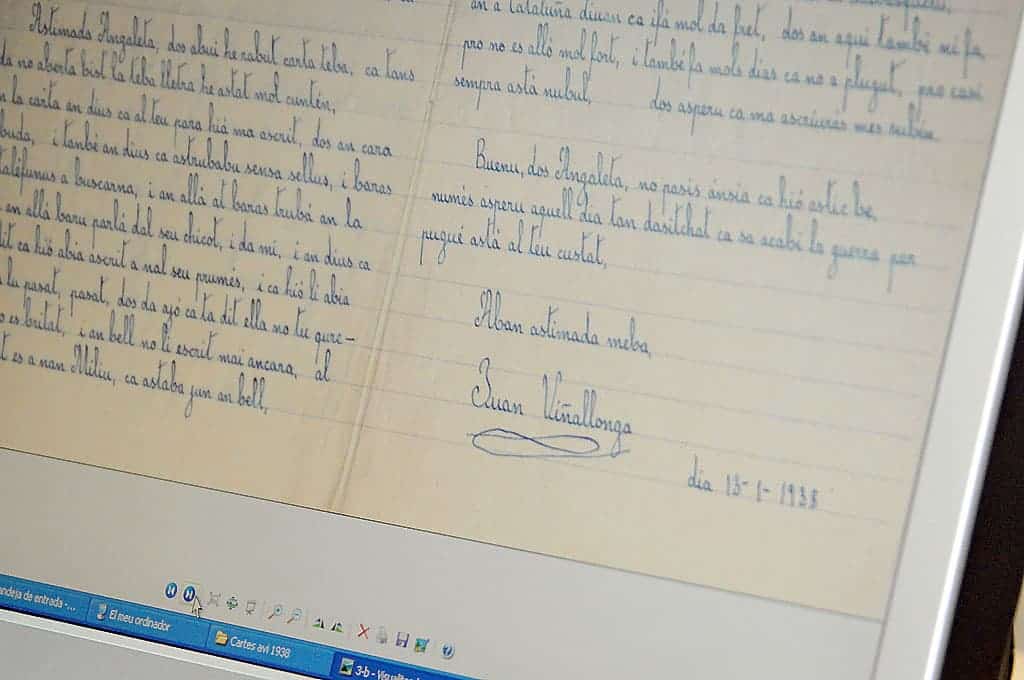 Astimada Angaleta, dos abui he rabut carta teba, ca tans
da no aberta bist la teba lletra he astat mol cuntén,
la carta an dius ca al teu para hió ma ascrit, dos an cara
buda, i tanbé an dius ca astrubabu sensa sellus, i baras
taléfunus a buscarna, i an allá at baras trubá an la
an allá baru parlá dal seu chicot, i da mi, i an dius ca
dit ca hió abia ascrit a nal seu prumés, i ca hió li abia
lu pasat, pasat, dos da ajó ca ta dit ella no tu qure-
es britat, i an bell no li escrit mai ancara, al
es a nan Miliu, ca astaba jun an bell,
an a Cataluña diuan ca ifá mol da fret, dos an aqui també mi fa
pro no es alló mol fort, i també fa mols dias ca no a plugut, pro casi
sempra astá nubul, dos asperu ca ma ascriuras mes subén
Buenu, dos Angaleta, no pasis ánsia ca hió astic be,
numés asperu aquell dia tan dasitchat ca sa acabi la guerra par
pugué astá al teu custat,
Aban astimada meba,
Juan Viñallonga
dia 13-1-1938
andeja de entrada -...
El meu ordinador
Cartes avi 1938
3-b - Visualitz